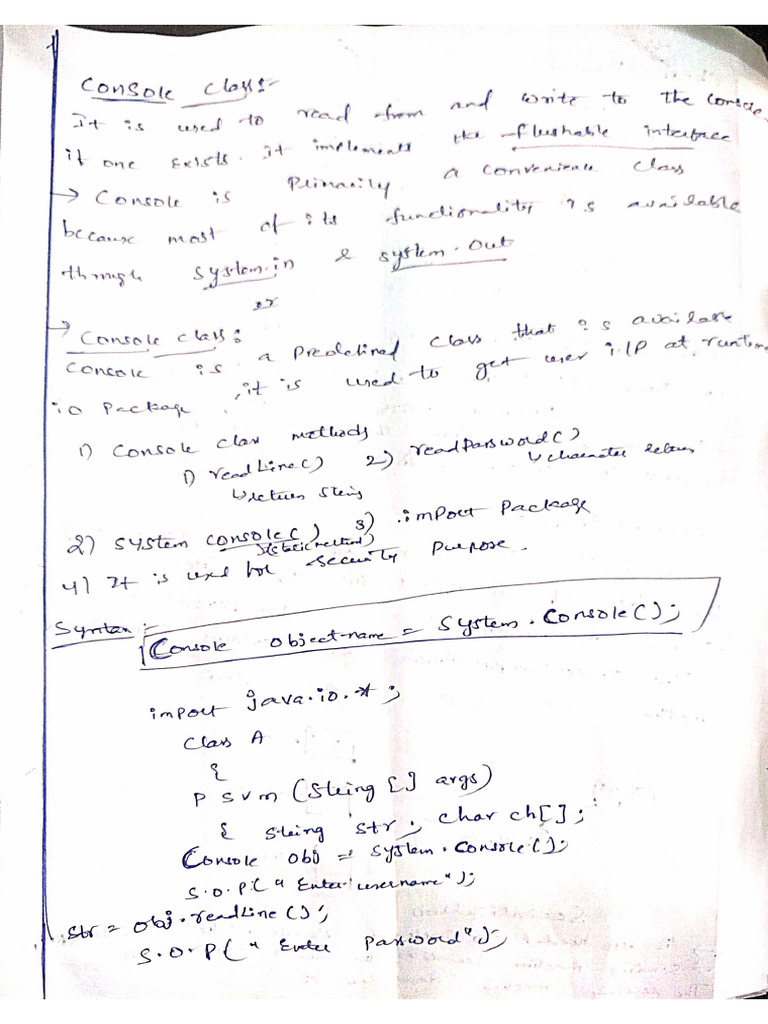 Console Class:-
It is used to read from and write to the console
if one exists. It implements the flushable interface
→ Console is Primarily a convenience class
because most of its functionality is available
through System.in & System.out
or
→ Console class:
Console is a Predefined class that is available
io package, it is used to get user i/p at runtime
1) Console class methods
1) readLine() 2) readPassword()
↳return String ↳character return
2) System console() 3) import Package
(static method)
4) It is used for security purpose.
Syntax :-
Console object-name = System.Console();
import java.io.*;
class A
{
P S V m (String [] args)
{ String str; char ch[];
Console obj = System.Console();
S.O.P(" Enter username");
str = obj.readLine();
S.O.P(" Enter Password");